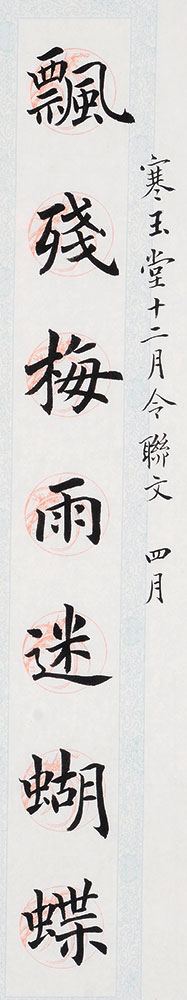 寒玉堂十二月令聯文 四月
飄殘梅雨迷蝴蝶